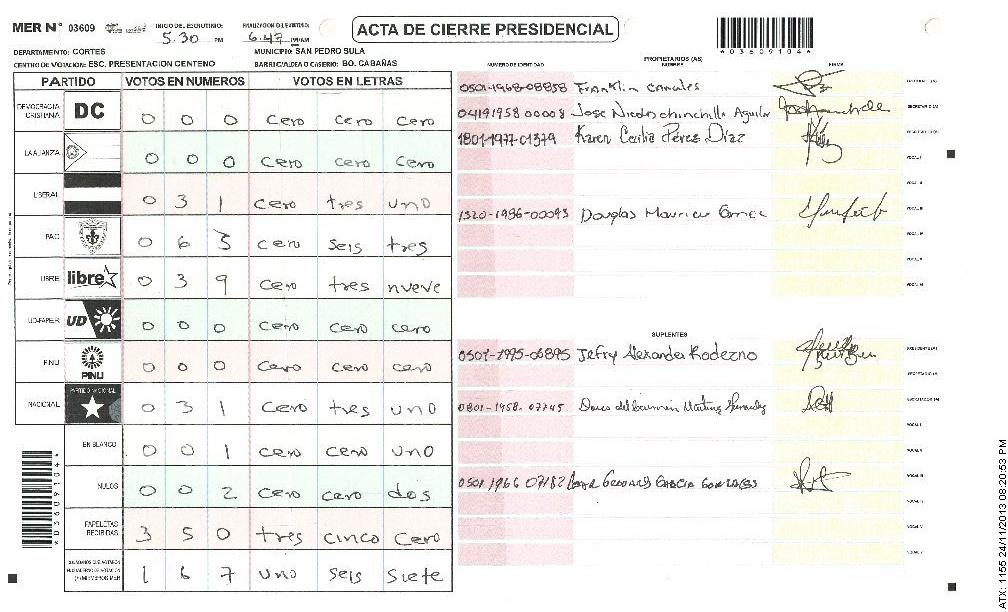 MER N° 03609
INICIO DEL ESCRUTINIO: 5:30 PM
FINALIZACION DEL ESCRUTINIO: 6:47 PM/AM
ACTA DE CIERRE PRESIDENCIAL
*03609104*
DEPARTAMENTO: CORTES
MUNICIPIO: SAN PEDRO SULA
CENTRO DE VOTACION: ESC. PRESENTACION CENTENO
BARRIO/ALDEA O CASERIO: BO. CABAÑAS
PARTIDO VOTOS EN NUMEROS VOTOS EN LETRAS
DEMOCRACIA CRISTIANA DC 0 0 0 cero cero cero
LA ALIANZA 0 0 0 cero cero cero
LIBERAL 0 3 1 cero tres uno
PAC 0 6 3 cero seis tres
LIBRE libre 0 3 9 cero tres nueve
UD-FAPER UD 0 0 0 cero cero cero
PINU PINU 0 0 0 cero cero cero
NACIONAL PARTIDO NACIONAL 0 3 1 cero tres uno
EN BLANCO 0 0 1 cero cero uno
NULOS 0 0 2 cero cero dos
PAPELETAS RECIBIDAS 3 5 0 tres cinco cero
1 6 7 uno seis siete
*03609104*
PROPIETARIOS (AS)
NUMERO DE IDENTIDAD NOMBRE FIRMA
0501-1968-08858 Franklin canales
04191958 00008 Jose Nieves chinchilla Aguilar SECRETARIO (A)
1801-1977-01379 Karen Cecilia Pérez Díaz
VOCAL I
VOCAL II
1320-1986-00093 Douglas Mauricio Gomez VOCAL III
VOCAL IV
VOCAL V
SUPLENTES
0501-1995-06895 Jefry Alexander Rodezno PRESIDENTE (A)
SECRETARIO (A)
0801-1958-07745 ESCRUTADOR (A)
VOCAL I
VOCAL II
0501 1966 07182 Garcia Gonzales VOCAL III
VOCAL IV
VOCAL V
ATX: 1155 24/11/2013 08:20:53 PM